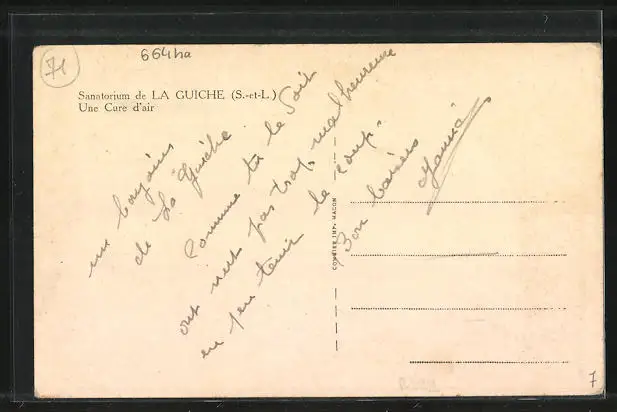 71
664ha
Sanatorium de LA GUICHE (S.-et-L.)
Une Cure d'air
un
de La Guiche
comme tu le Soit
ont nest pas trop malheureuse
en peu tenir le coup.
Bon baisers
COMBIER IMP. MACON
7